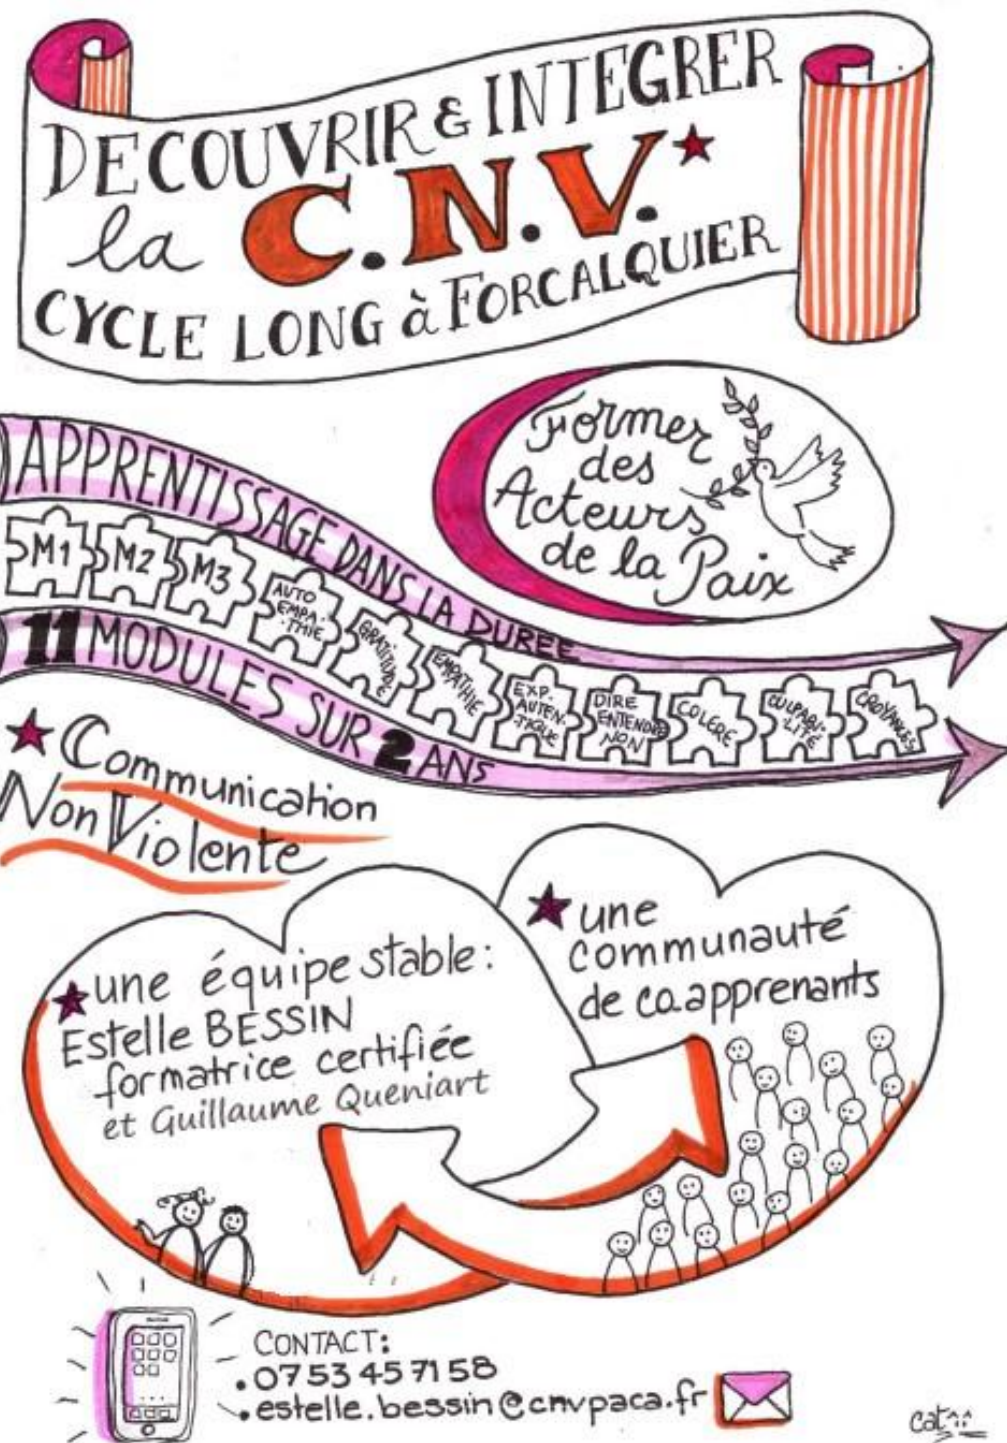 DECOUVRIR & INTEGRER
la C.N.V.
CYCLE LONG à FORCALQUIER
Former
des
Acteurs
de la Paix
APPRENTISSAGE DANS LA DUREE
M1
M2
M3
AUTO
EMPA-
-THIE
GRATITUDE
EMPATHIE
EXP.
AUTEN-
TIQUE
DIRE
ENTENDRE
NON
COLERE
CULPABI-
LITÉ
CROYANCES
11 MODULES SUR 2 ANS
Communication
Non Violente
une équipe stable:
Estelle BESSIN
formatrice certifiée
et Guillaume Queniart
une
communauté
de co.apprenants
CONTACT:
. 07 53 45 71 58
. estelle.bessin@cnvpaca.fr
cat